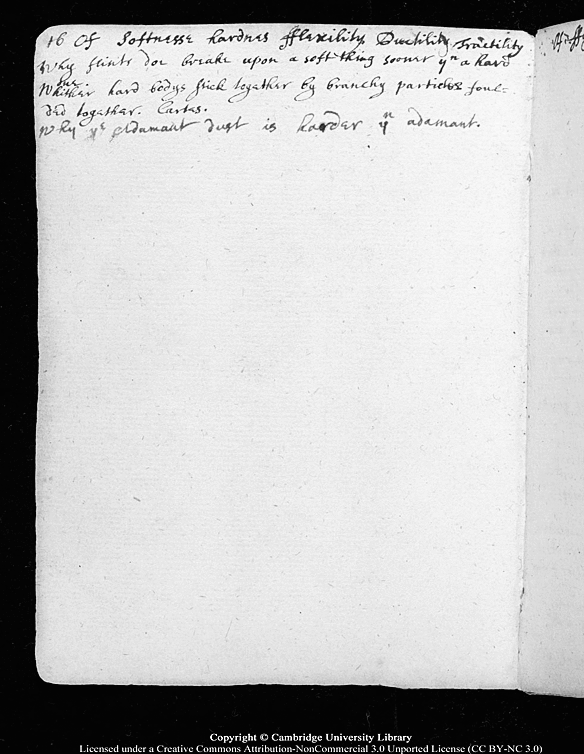 16 Of Softnesse hardnes fflexility Ductility Tractility
Why flints doe breake upon a soft thing sooner yn a hard
one
Whither hard bodys stick together by branchy particles foul-
ded together. Cartes.
Why ye Adamant dust is harder yn adamant.
Copyright © Cambridge University Library
Licensed under a Creative Commons Attribution-NonCommercial 3.0 Unported License (CC BY-NC 3.0)